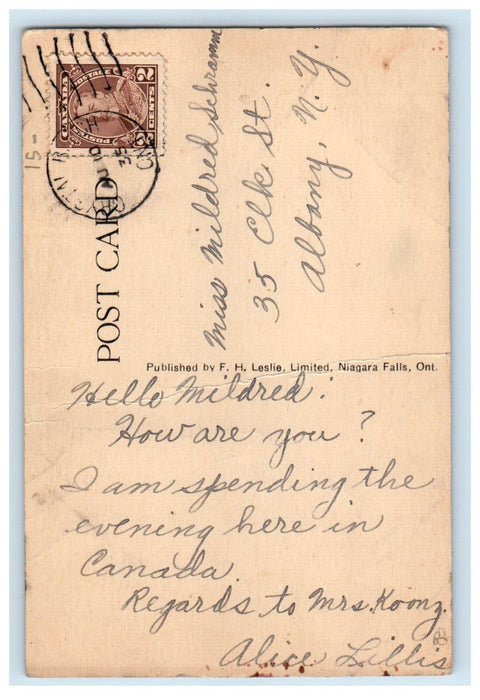 CANADA
POSTAGE POSTES
2 CENTS 2
ONT
35
15-
POST CARD
Miss Mildred Schramm
35 Elk St.
Albany, N.Y.
Published by F. H. Leslie, Limited, Niagara Falls, Ont.
Hello Mildred:
How are you?
I am spending the
evening here in
Canada.
Regards to Mrs. Koonz.
Alice Lillis